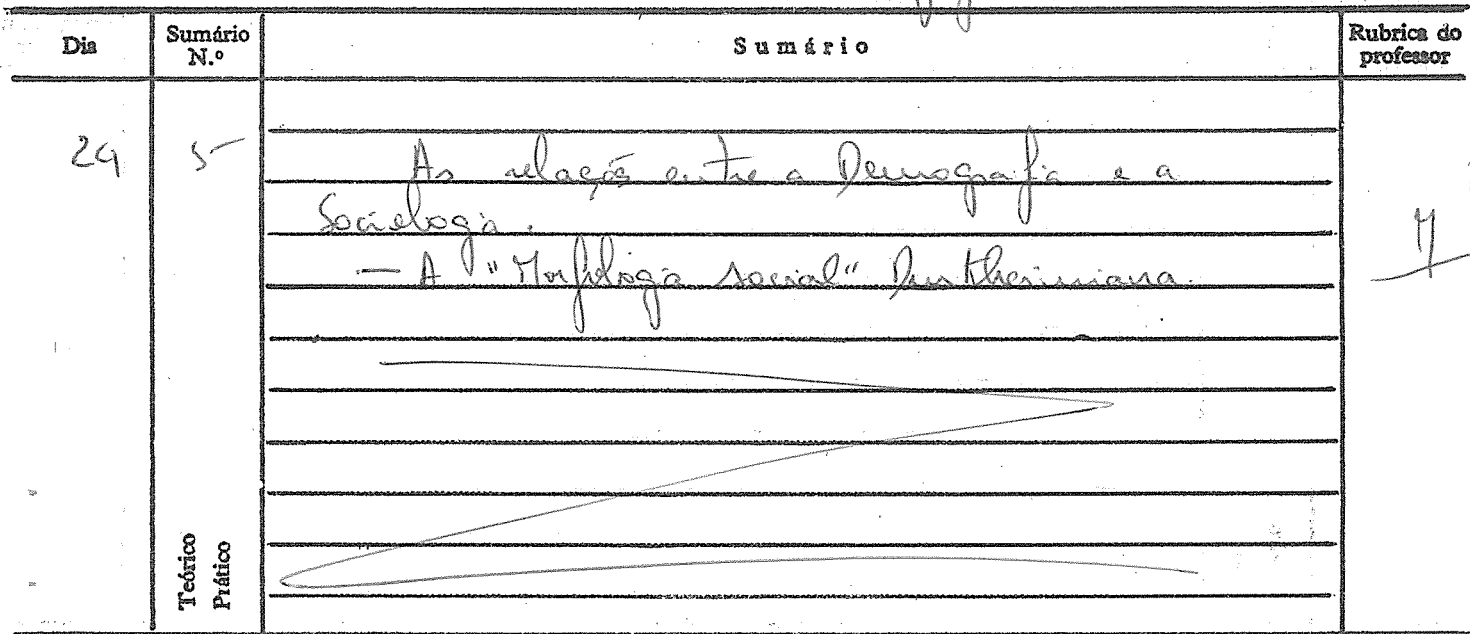 Dia Sumário N.º Sumário Rubrica do professor
24 5 As relações entre a Demografia e a
Sociologia.
— A "Morfologia social" Durkheimiana.
Teórico
Prático